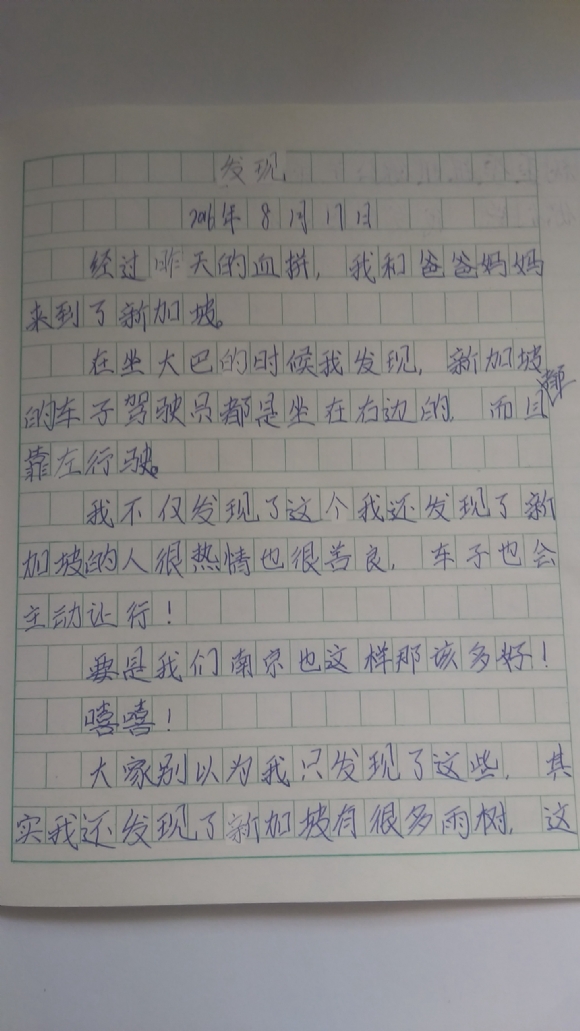 发现
2016年8月17日
经过昨天的血拼，我和爸爸妈妈
来到了新加坡。
在坐大巴的时候我发现，新加坡
的车子驾驶员都是坐在右边的，而且都
靠左行驶。
我不仅发现了这个我还发现了新
加坡的人很热情也很善良，车子也会
主动让行！
要是我们南京也这样那该多好！
嘻嘻！
大家别以为我只发现了这些，其
实我还发现了新加坡有很多雨树，这